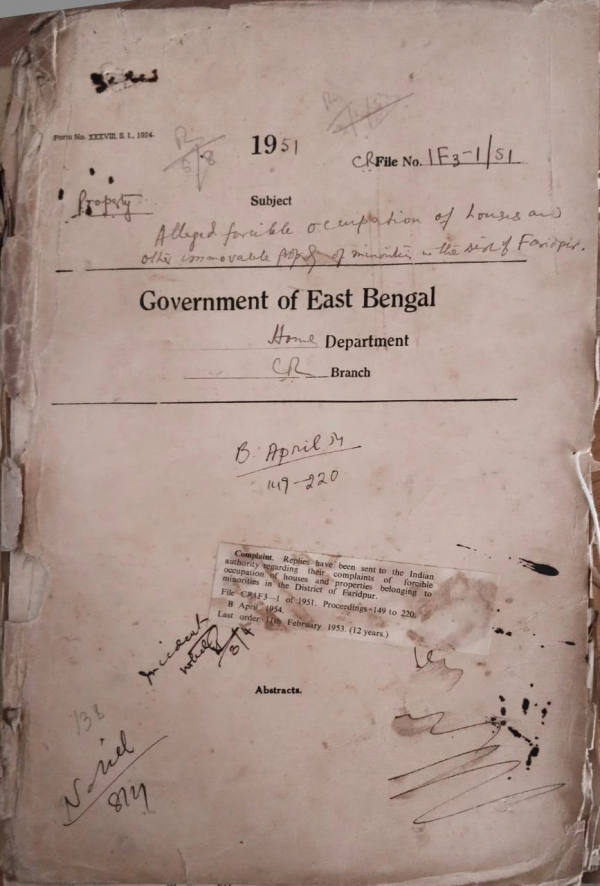 Form No. XXXVIII. S. I., 1924.
1951
CR File No. 1F3-1/51
Property
Subject
Alleged forcible occupation of houses and
other immovable propty of minorities in the Dist of Faridpur.
Government of East Bengal
Home Department
CR Branch
B. April 54
149-220
Complaint. Replies have been sent to the Indian
authority regarding their complaints of forcible
occupation of houses and properties belonging to
minorities in the District of Faridpur.
File CR1F3—1 of 1951. Proceedings-149 to 220.
B April 1954.
Last order 11th February 1953. (12 years.)
3/4
Abstracts.
138